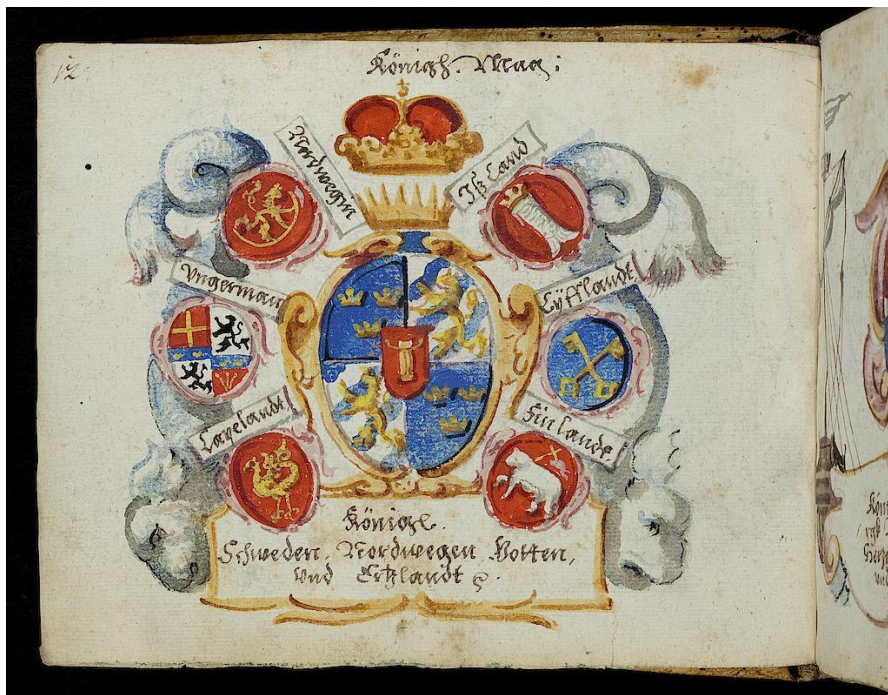 12
Königh. May:
Nordwegen
Iß Land
Ungerman
Lyfflandt
Lapelandt
Finlandt
Königl.
Schweden. Nordwegen Gotten,
Vnd Ertzlandt